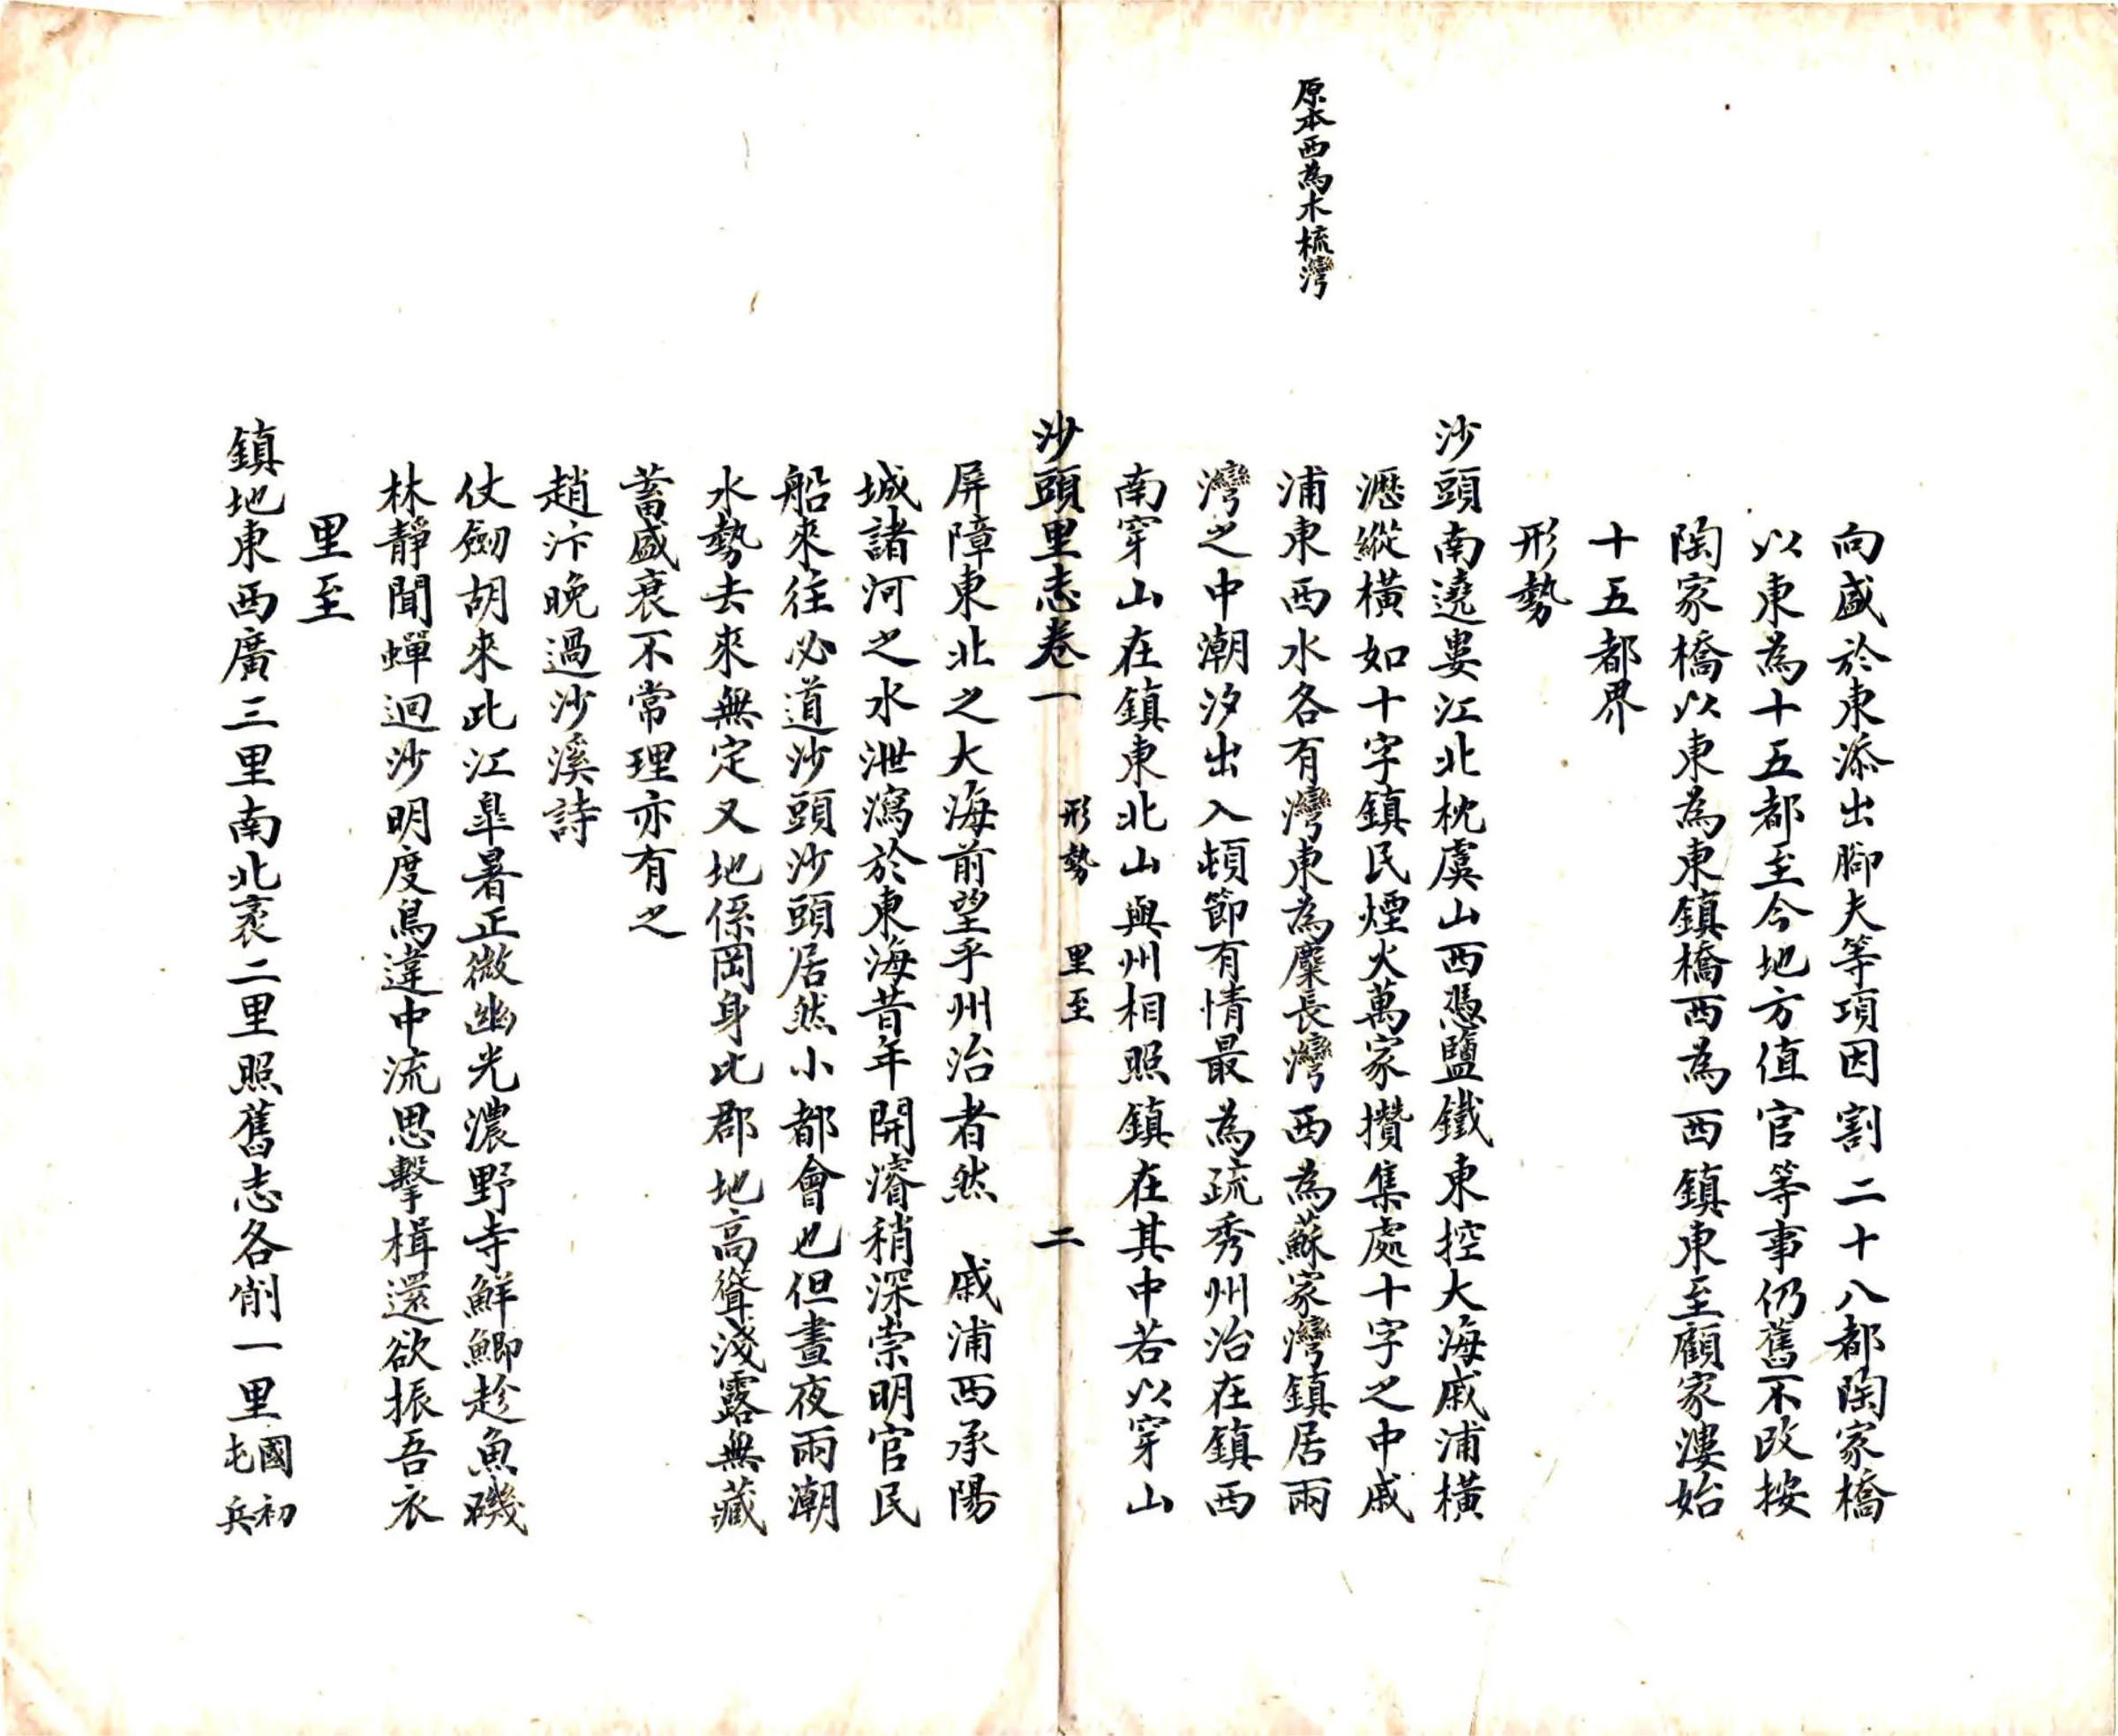 向盛於東添出腳夫等項因割二十八都陶家橋
以東為十五都至今地方值官等事仍舊不改按
陶家橋以東為東鎮橋西為西鎮東至顧家漊始
十五都界
形勢
沙頭南遶婁江北枕虞山西憑鹽鐵東控大海戚浦橫
瀝縱橫如十字鎮民煙火萬家攢集處十字之中戚
原本西為木梳灣
浦東西水各有灣東為麋長灣西為蘇家灣鎮居兩
灣之中潮汐出入頓節有情最為疏秀州治在鎮西
南穿山在鎮東北山與州相照鎮在其中若以穿山
沙頭里志卷一 形勢 里至 二
屏障東北之大海前望乎州治者然 戚浦西承陽
城諸河之水泄瀉於東海昔年開濬稍深崇明官民
船來往必道沙頭沙頭居然小都會也但晝夜兩潮
水勢去來無定又地係岡身比郡地高聳淺露無藏
蓄盛衰不常理亦有之
趙汴晚過沙溪詩
仗劒胡來此江皐暑正微幽光濃野寺鮮鯽趁魚磯
林靜聞蟬迴沙明度鳥違中流思擊楫還欲振吾衣
里至
鎮地東西廣三里南北袤二里照舊志各削一里國初
屯兵